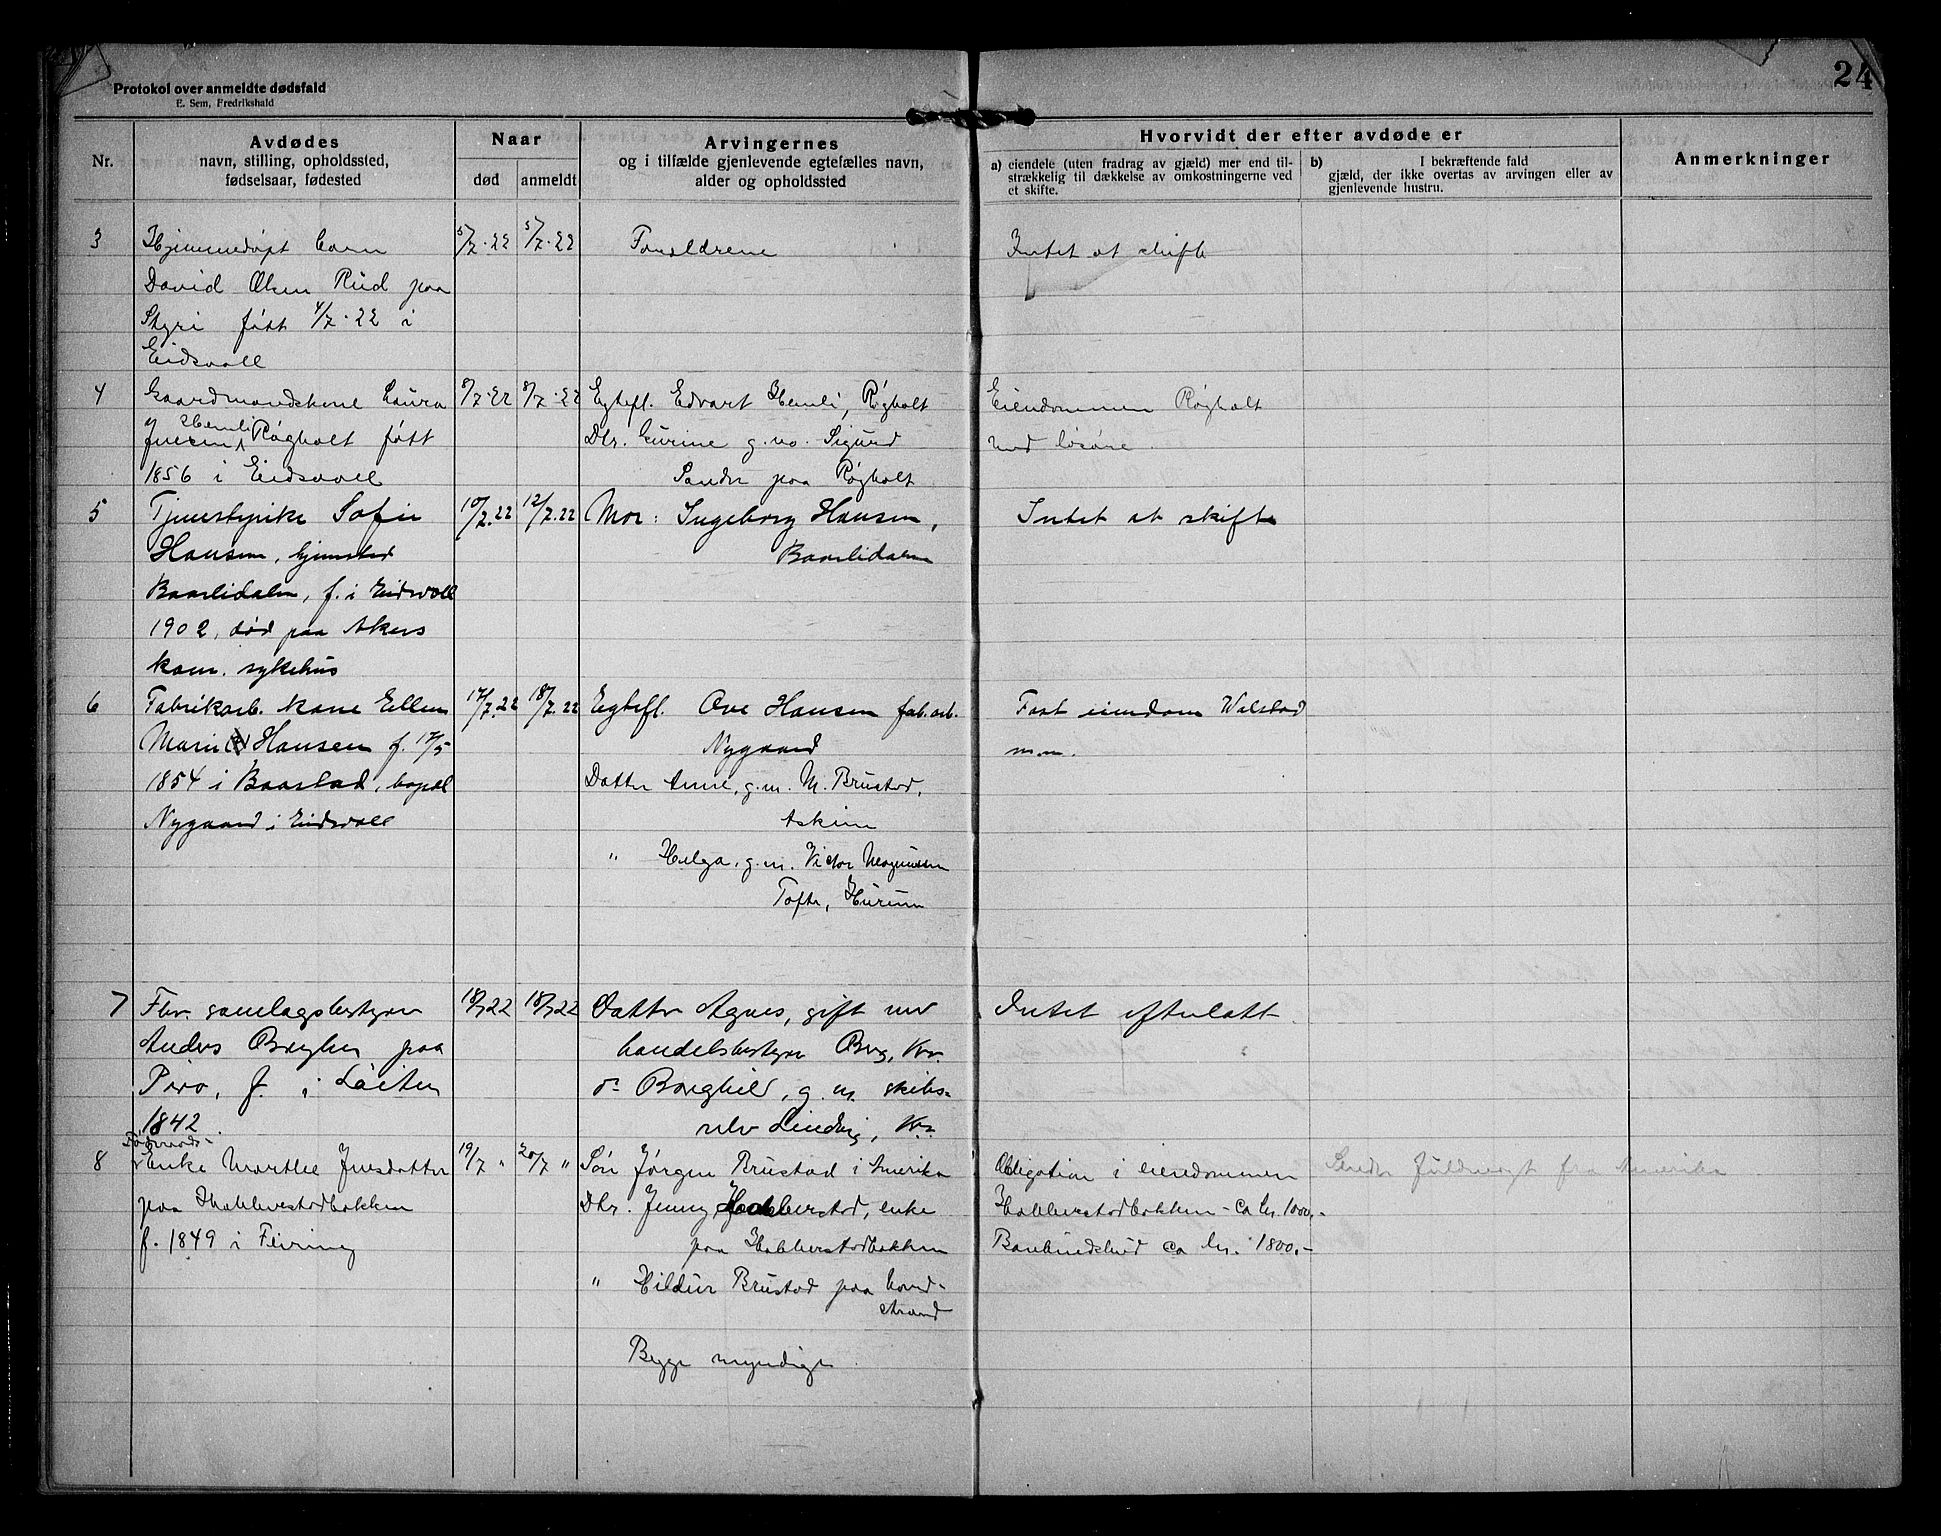 24
Protokol over anmeldte dødsfald
E. Sem, Fredrikshald
Nr.
Avdødes
navn, stilling, opholdssted,
fødselsaar, fødested
Naar
død
anmeldt
Arvingernes
og i tilfælde gjenlevende egtefælles navn,
alder og opholdssted
Hvorvidt der efter avdøde er
a) eiendele (uten fradrag av gjæld) mer end til-
strækkelig til dækkelse av omkostningerne ved
et skifte.
b) I bekræftende fald
gjæld, der ikke overtas av arvingen eller av
gjenlevende hustru.
Anmerkninger
3 Hjemmedøpt barn 5/7.22 5/7.22 Forældrene Intet at skifte
David Olsen Rud paa
Styri født 4/7.22 i
Eidsvoll
4 Gaardmandskone Laura 8/7.22 8/7.22 Egtefl. Edvart Hemli, Røgholt Eiendommen Røgholt
Jensen Hemli Røgholt født Dtr. Gurine g.m. Sigurd med løsøre.
1856 i Eidsvoll Sander paa Røgholt
5 Tjenestepike Sofie 10/7.22 12/7.22 Mor: Ingeborg Hansen, Intet at skifte
Hansen, hjemsted Baarlidalen
Baarlidalen, f. i Eidsvoll
1902, død paa Akers
kom. sykehus
6 Fabrikarb. kone Ellen 17/7.22 18/7.22 Egtefl. Ove Hansen fab.arb. Fast eiendom Walstad
Marie Hansen f. 17/5 Nygaard m.m.
1854 i Baastad, bopæl Datter Anne, g.m. M. Brustad,
Nygaard i Eidsvoll Askim
" Helga, g.m. Victor Magnussen
Tofte, Hurum
7 Fhv. samlagsbestyrer 18/7 22 18/7 22 Datter Agnes, gift med Intet efterlatt.
Anders Bryhn paa handelsbestyrer Berg, Kr.
Piro, f. i Løiten D= Borghild, g.m. skibs-
1842. Lindvig, Kr.
8 Føderaads-
Enke Marthe Jensdatter 19/7 " 20/7 " Søn Jørgen Brustad i Amerika Obligation i eiendommen Sender fuldmagt fra Amerika
paa Habberstadbakken Dtr. Jenny Habberstad, enke Habberstadbakken - ca kr. 1000,-
f. 1849 i Feiring paa Habberstadbakken Bankindskud ca kr. 1800,-
" Hildur Brustad paa
strand
Begge myndige.